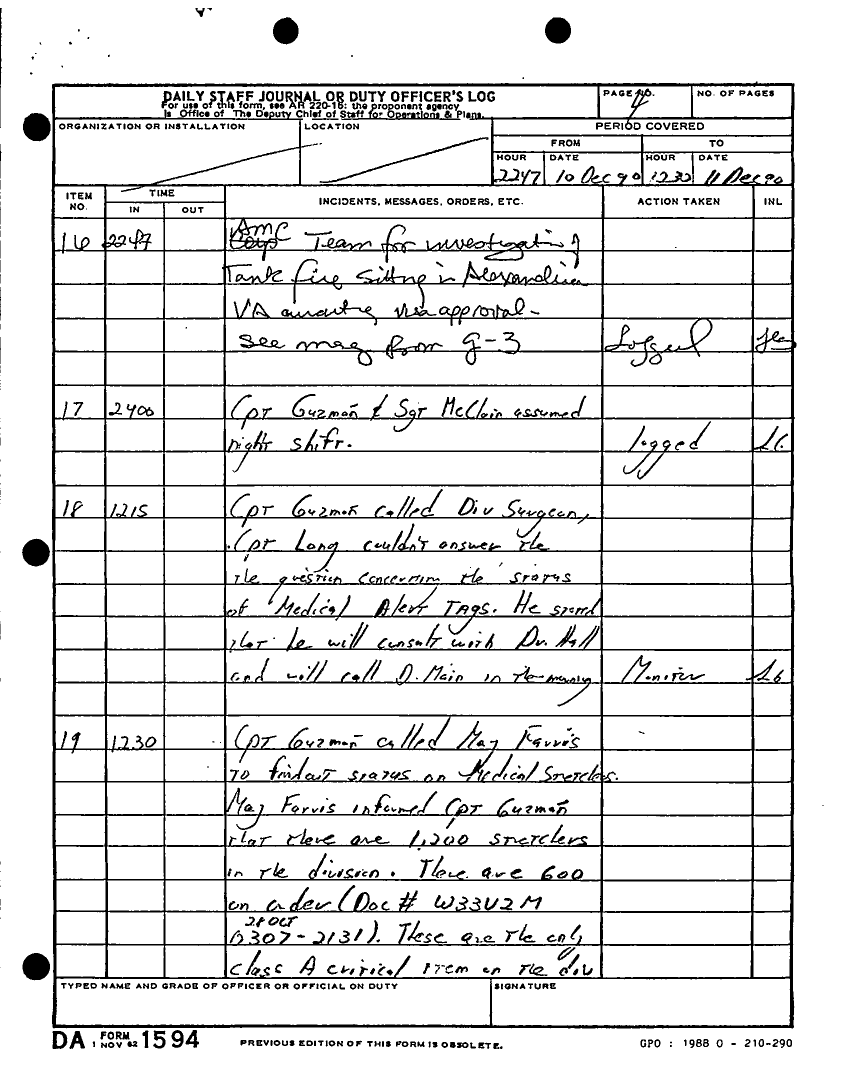 DAILY STAFF JOURNAL OR DUTY OFFICER'S LOG
For use of this form, see AR 220-15; the proponent agency
is Office of The Deputy Chief of Staff for Operations & Plans.
PAGE NO.
4
NO. OF PAGES
ORGANIZATION OR INSTALLATION
LOCATION
PERIOD COVERED
FROM
TO
HOUR DATE HOUR DATE
2247 10 Dec 90 1230 11 Dec 90
ITEM NO.
TIME
IN OUT
INCIDENTS, MESSAGES, ORDERS, ETC.
ACTION TAKEN
INL
16 2247 AMC Team for investigating
Tank fire sitting in Alexandria
VA awaiting visa approval -
See msg from G-3 Logged
17 2400 Cpt Guzman & Sgt McClain assumed
night shift. logged
18 1215 Cpt Guzman called Div Surgeon,
Cpt Long couldn't answer the
the question concerning the status
of Medical Alert TAGS. He stated
that he will consult with Dr. Hall
and will call D. Main in the morning Monitor
19 1230 Cpt Guzman called Maj Farris
to findout status on Medical Stretchers.
Maj Farris informed Cpt Guzman
that there are 1,200 stretchers
in the division. There are 600
on order (Doc # W33V2M
28 OCT
0307-2131). These are the only
class A critical item on the div
TYPED NAME AND GRADE OF OFFICER OR OFFICIAL ON DUTY
SIGNATURE
DA FORM 1 NOV 62 1594
PREVIOUS EDITION OF THIS FORM IS OBSOLETE.
GPO : 1988 O - 210-290